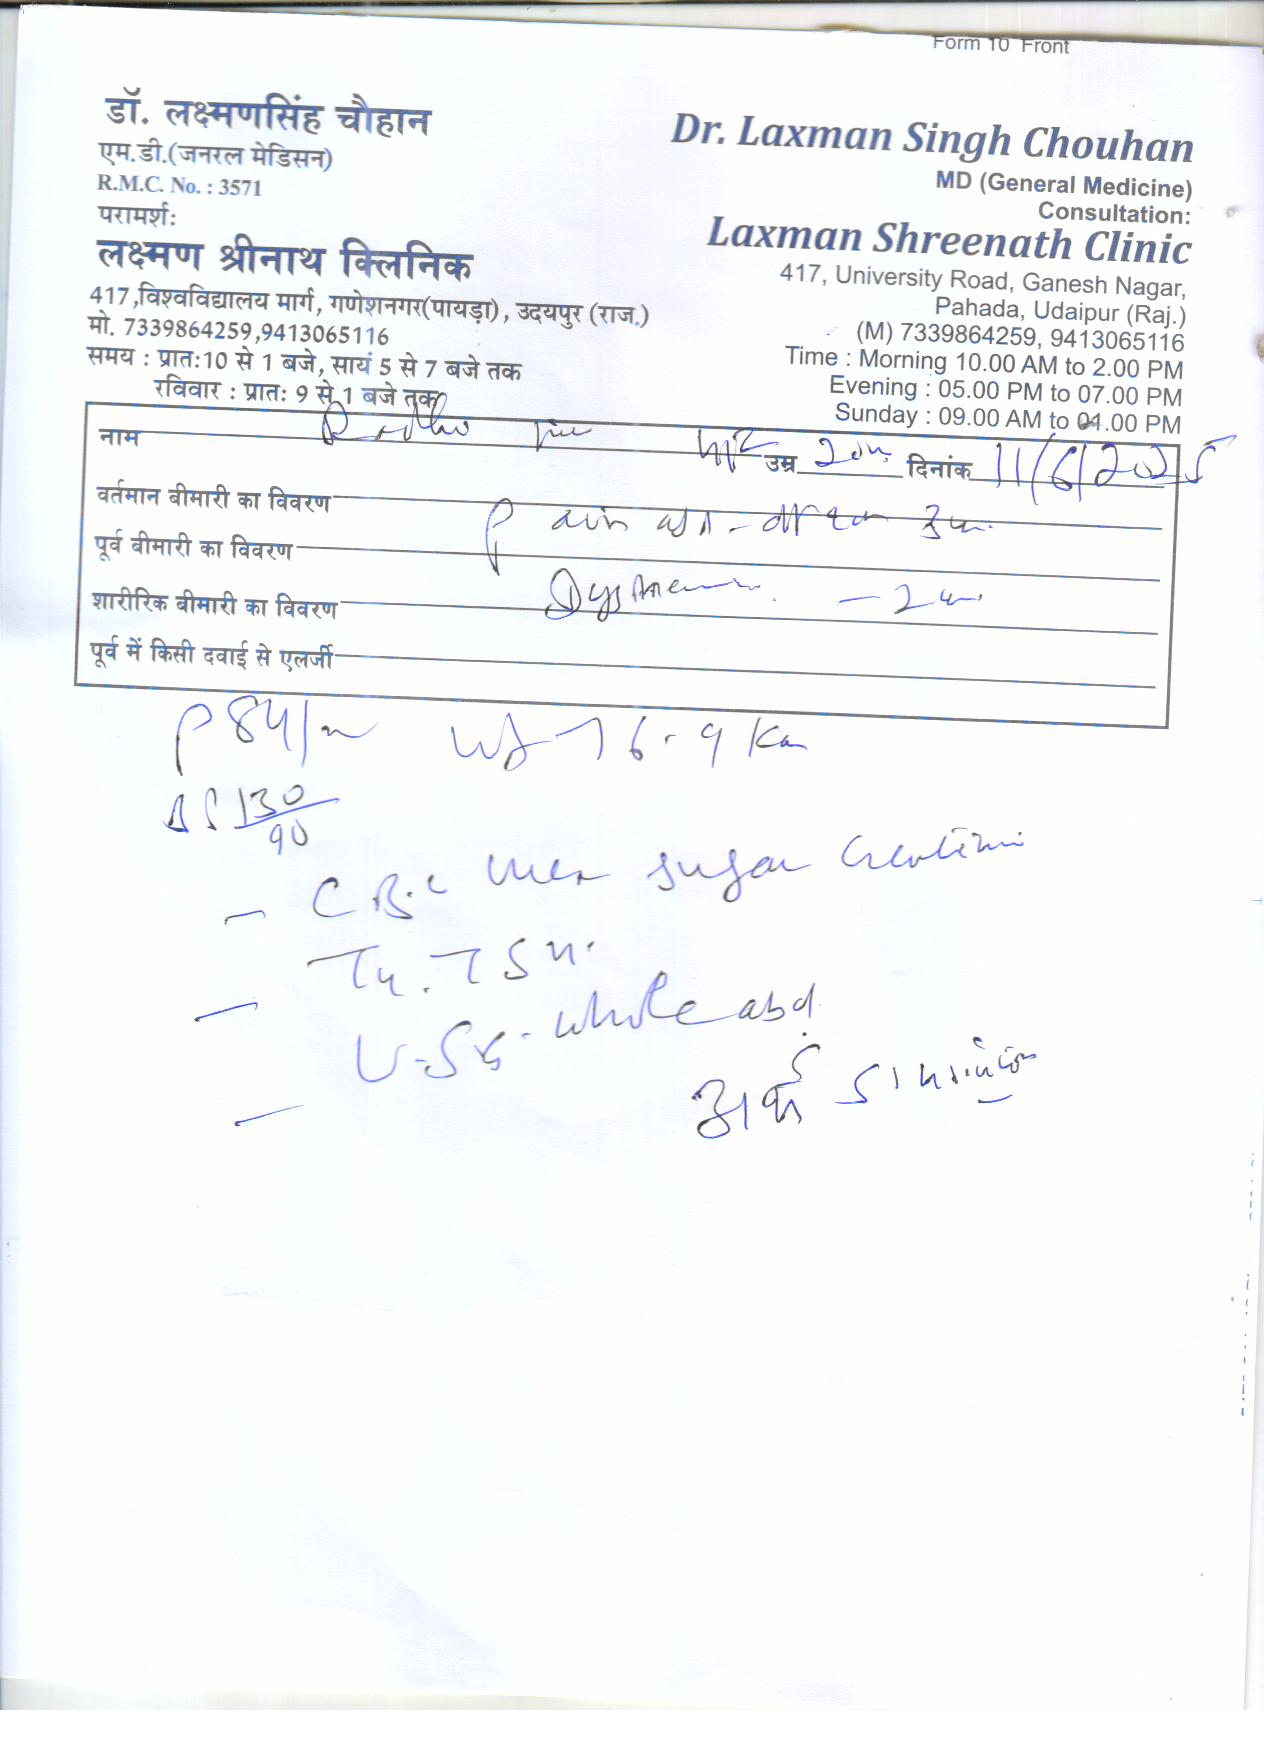 Form 10 Front
डॉ. लक्ष्मणसिंह चौहान
एम.डी.(जनरल मेडिसन)
R.M.C. No. : 3571
परामर्श:
लक्ष्मण श्रीनाथ क्लिनिक
417,विश्वविद्यालय मार्ग, गणेशनगर(पायड़ा), उदयपुर (राज.)
मो. 7339864259,9413065116
समय : प्रात:10 से 1 बजे, सायं 5 से 7 बजे तक
रविवार : प्रात: 9 से 1 बजे तक
Dr. Laxman Singh Chouhan
MD (General Medicine)
Consultation:
Laxman Shreenath Clinic
417, University Road, Ganesh Nagar,
Pahada, Udaipur (Raj.)
(M) 7339864259, 9413065116
Time : Morning 10.00 AM to 2.00 PM
Evening : 05.00 PM to 07.00 PM
Sunday : 09.00 AM to 01.00 PM
नाम उम्र दिनांक 11/6/2025
वर्तमान बीमारी का विवरण Pain
पूर्व बीमारी का विवरण
शारीरिक बीमारी का विवरण
पूर्व में किसी दवाई से एलर्जी
P 84/m wt 76.9 Kg
130/90
- CBC Urea sugar creatinine
- TSH
U.S.G. whole abd